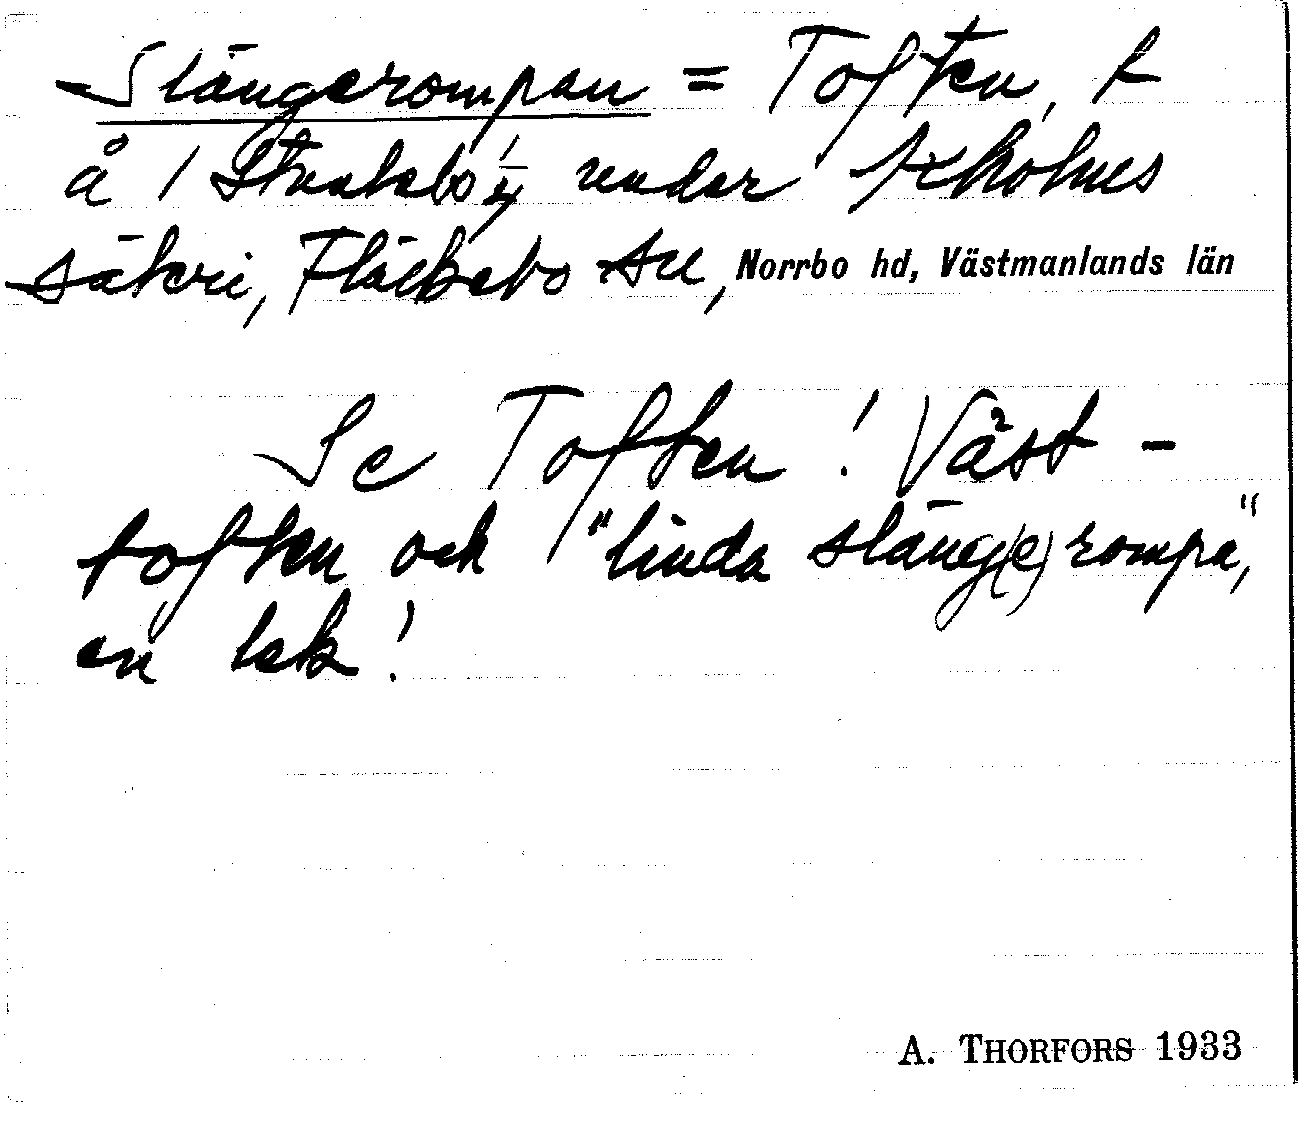 Slängerompan = Toften, t
å 1 Stvatebo 1/4 under
säteri, Fläckebo sn, Norrbo hd, Västmanlands län
Se Toften! Väst-
toften och "linda släng(e)rompa",
en lek!
A. THORFORS 1933